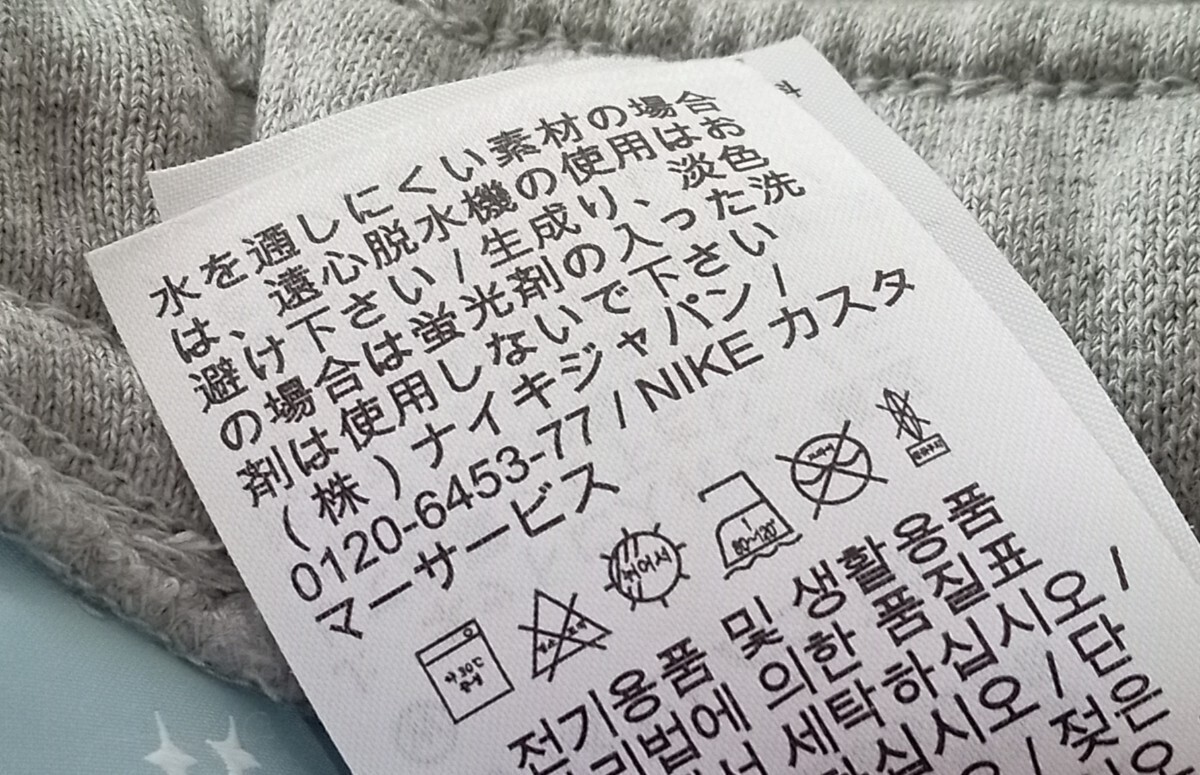 水を通しにくい素材の場合
は、遠心脱水機の使用はお
避け下さい / 生成り、淡色
の場合は蛍光剤の入った洗
剤は使用しないで下さい
(株) ナイキジャパン /
0120-6453-77 / NIKE カスタ
マーサービス
약30℃
뉘어서
80~120℃
전기용품 및 생활용품
법에 의한 품질표
세탁하십시오 /
십시오 / 단
/ 젖은